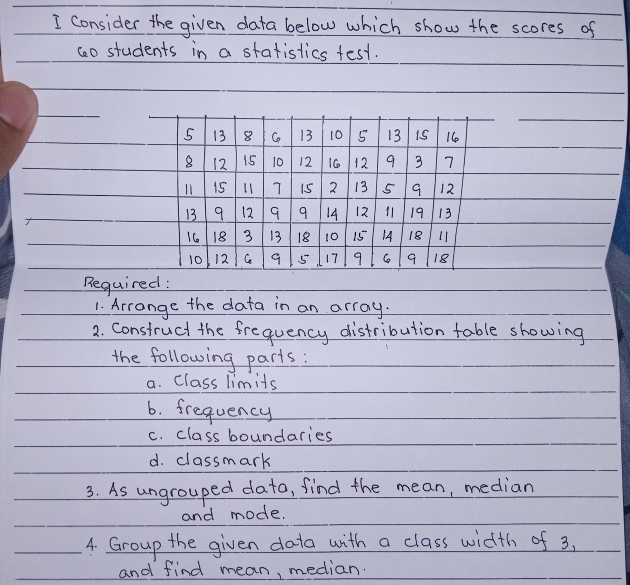 I Consider the given data below which show the scores of
60 students in a statistics test.
5 13 8 6 13 10 5 13 15 16
8 12 15 10 12 16 12 9 3 7
11 15 11 7 15 2 13 5 9 12
13 9 12 9 9 14 12 11 19 13
16 18 3 13 18 10 15 14 18 11
10 12 6 9 5 17 9 6 9 18
Required:
1. Arrange the data in an array.
2. Construct the frequency distribution table showing
the following parts:
a. Class limits
b. frequency
c. class boundaries
d. classmark
3. As ungrouped data, find the mean, median
and mode.
4. Group the given data with a class width of 3,
and find mean, median.